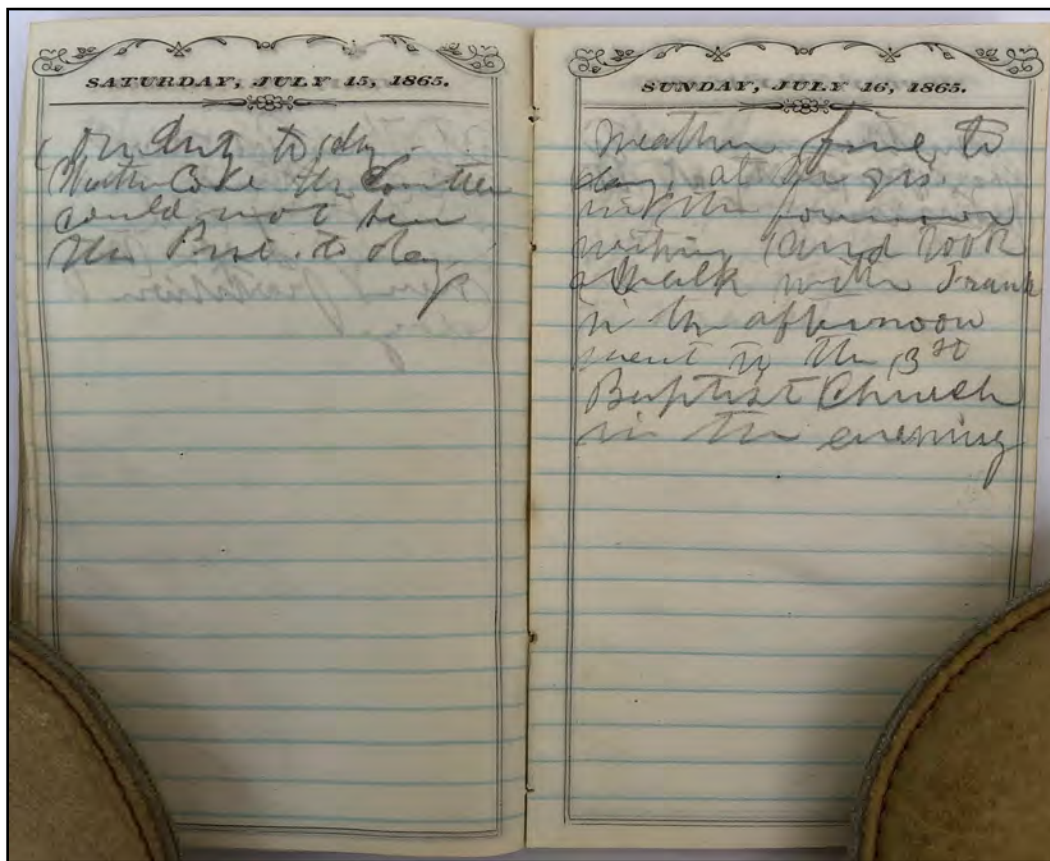 SATURDAY, JULY 15, 1865.
on duty to day
Weather
could not
the Pres. to day
SUNDAY, JULY 16, 1865.
Weather fine to
day, at
in the forenoon
writing and took
a walk with Frank
in the afternoon
went to the
Baptist Church
in the evening